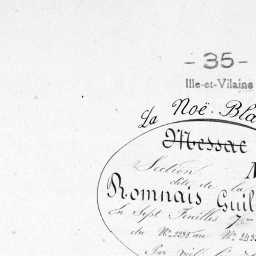 - 35 -
Ille-et-Vilaine
La Noë-Bla
Messac
Section
dite de la
Romnais Guil
En Sept Feuilles 7me
du No 2235 au No 243
Par